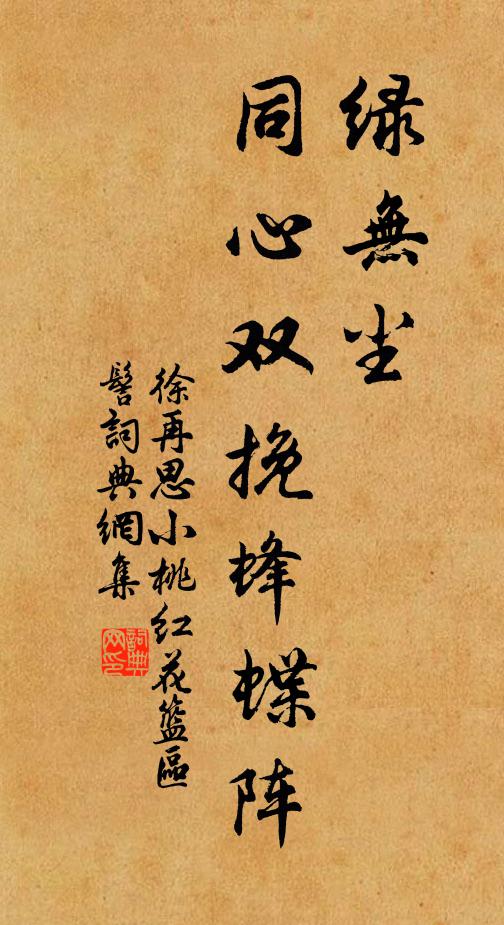 绿無尘
同心双挽蜂蝶阵
徐再思小桃红花篮區
髻詞典網集
詞典网印